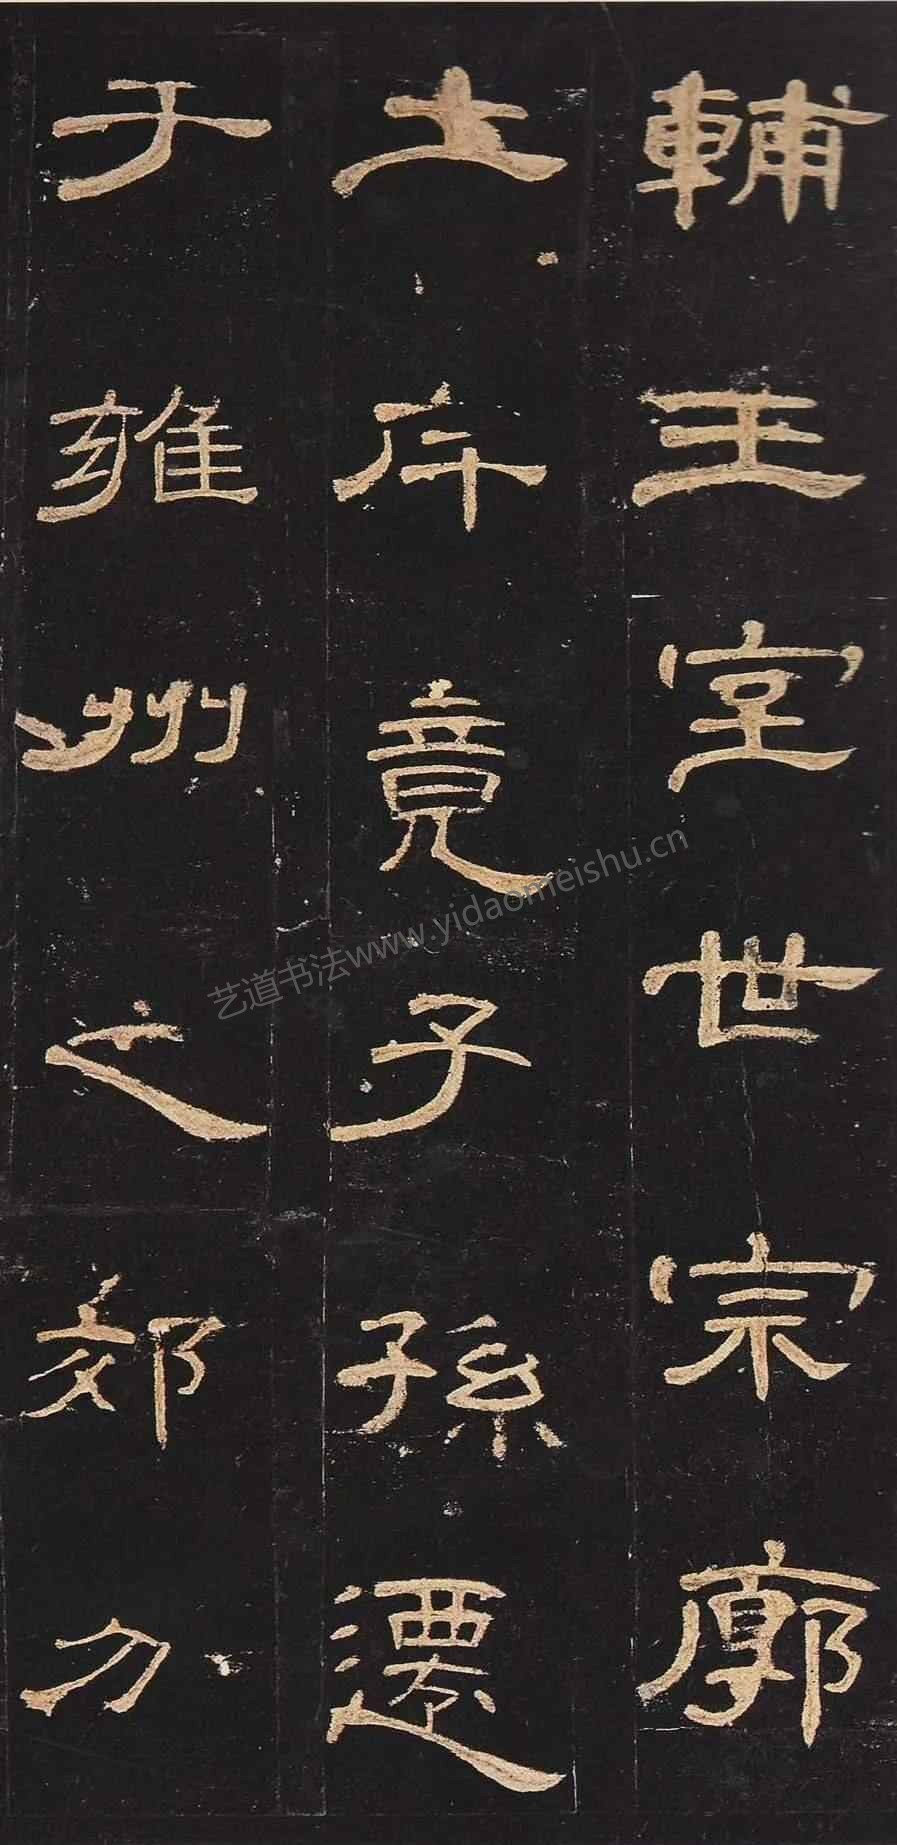 輔王室世宗廓
土斥竟子孫遷
于雍州之郊分
艺道书法www.yidaomeishu.cn